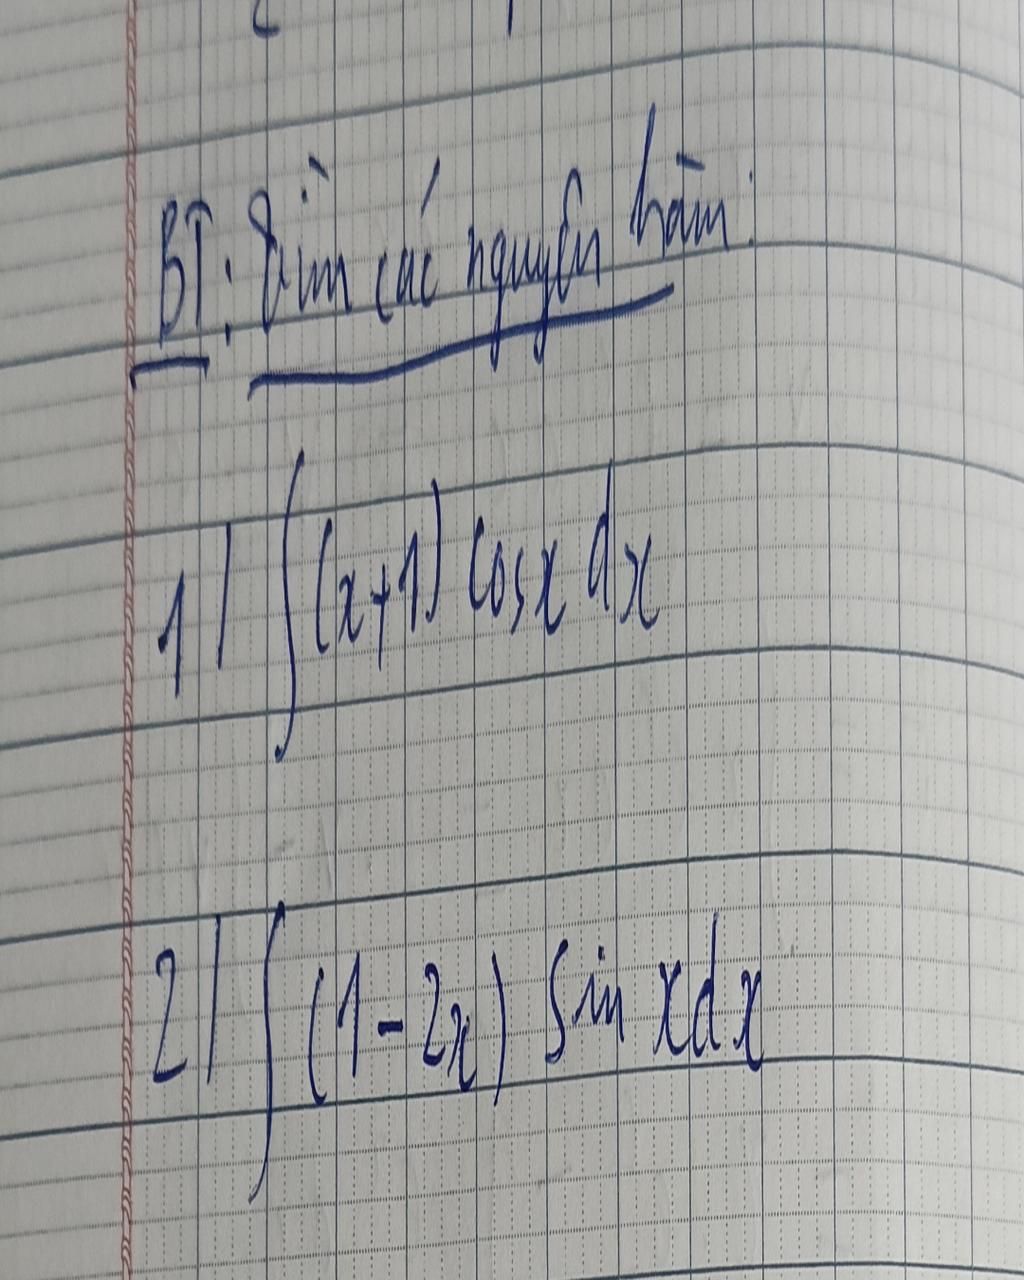 BT: Tìm các nguyên hàm:
1) ∫(x+1) cosx dx
2) ∫(1-2x) sin xdx